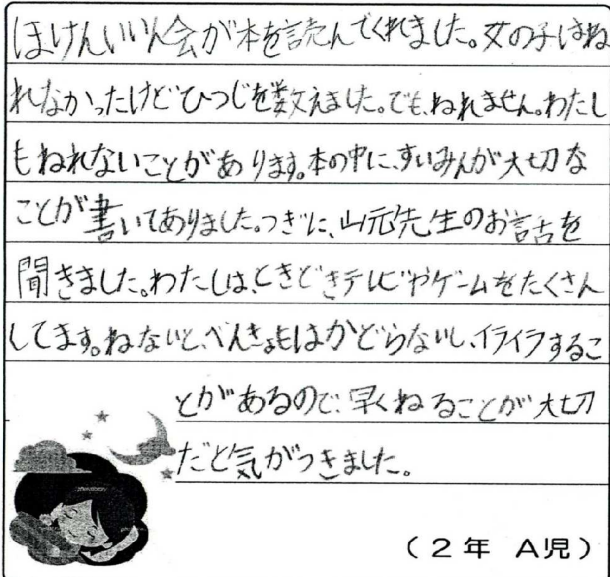 ほけんいいん会が本を読んでくれました。女の子はね
れなかったけどひつじを数えました。でも、ねれません。わたし
もねれないことがあります。本の中に、すいみんが大切な
ことが書いてありました。つぎに、山元先生のお話を
聞きました。わたしは、ときどきテレビやゲームをたくさん
してます。ねないと、べんきょもはかどらないし、イライラするこ
とがあるので、早くねることが大切
だと気がつきました。
(2年 A児)